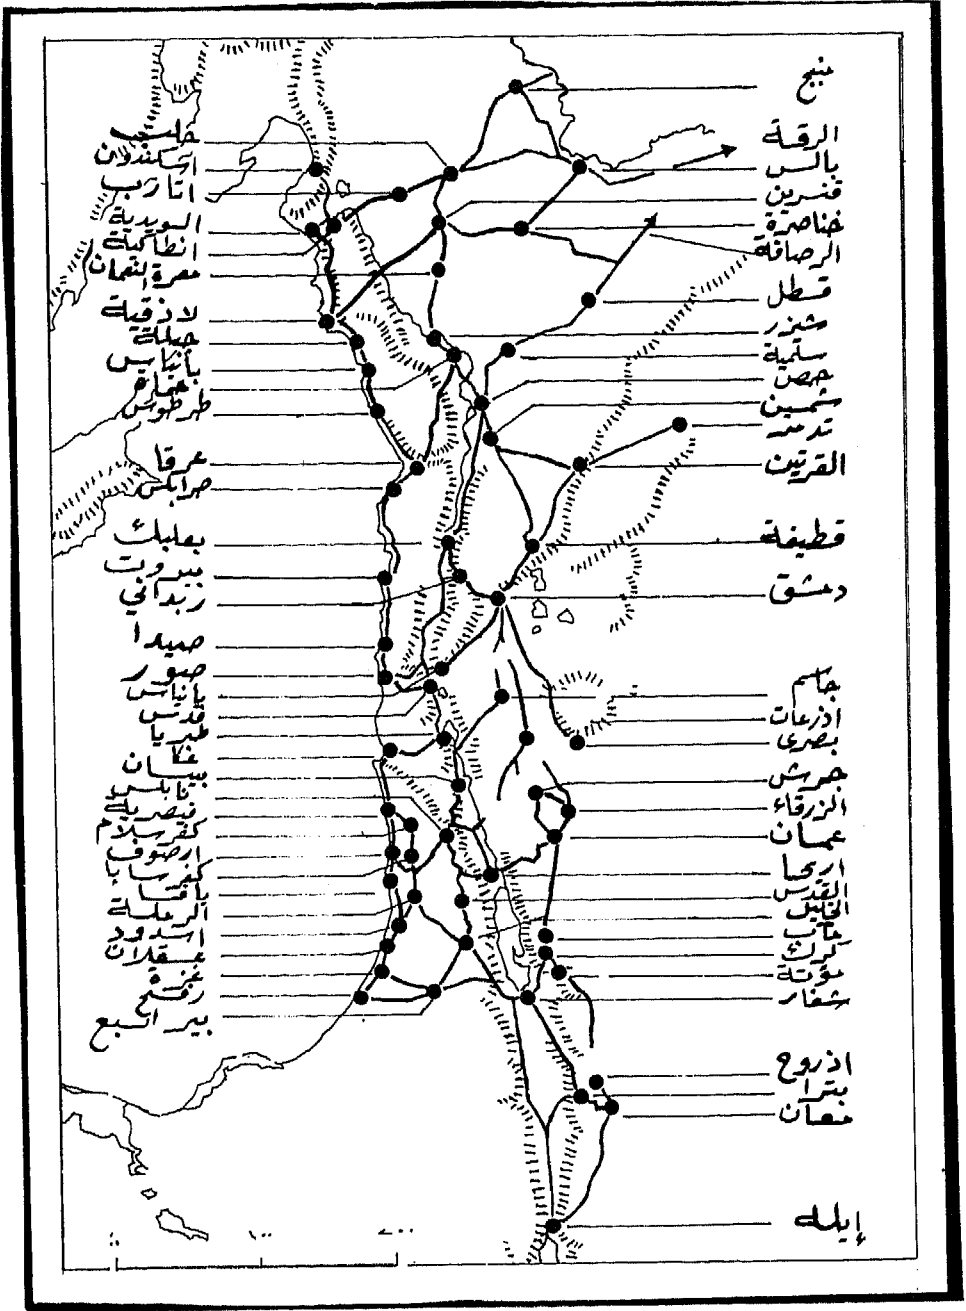 منبج
الرقة
بالس
قنسرين
خناصرة
الرصافة
قسطل
شيزر
سلمية
حمص
شمسين
تدمر
القريتين
قطيفة
دمشق
جاسم
اذرعات
بصرى
جرش
الزرقاء
عمان
اريحا
القدس
الخليل
كرك
مؤتة
اذروح
بترا
معان
إيله
حلب
اسكندرون
اتارب
السويدية
انطاكية
معرة النعمان
لاذقية
جبلة
بانياس
حماه
طرطوس
عرقا
بعلبك
بيروت
زبداني
صيدا
صور
بانياس
قدس
طبريا
عكا
بيسان
نابلس
قيصرية
كفرسلام
ارصوف
يافا
الرملة
اسدود
عسقلان
غزة
رفح
بير السبع
١٠٠
٢٠٠